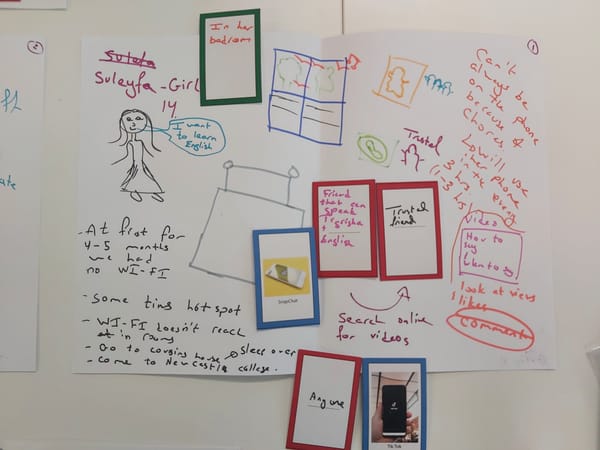 In her
bedroom
Suleyfa
Suleyfa - Girl
14.
I want
to learn
English
- At first for
4-5 months
we had
no WI-FI
- Some tims hotspot
- WI-FI doesn't reach
in rooms
- Go to cousins house
Sleep over
- Come to Newcastle college.
SnapChat
Friend
that can
speak
Tigrinha
+
English
Trusted
friend
Trusted
Search online
for videos
Anyone
TikTok
1
Can't
always be
on the phone
because
Chories &
will use
her phone
in the
1-3 hrs
Video
How to
say
look at views
likes
Comments
2